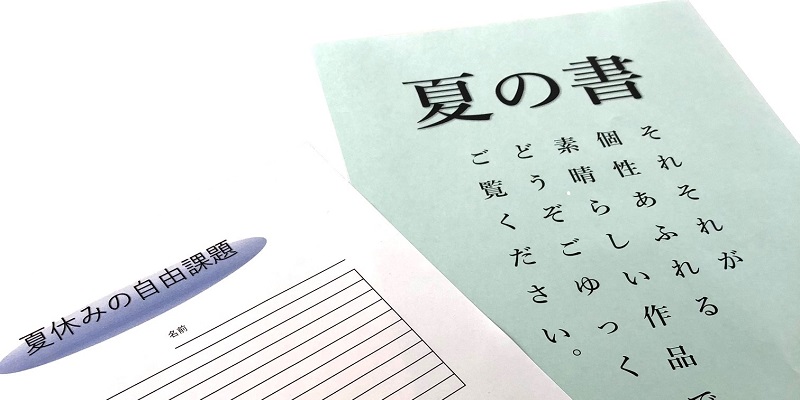 夏の書
それそれが
個性あふれる
素晴らしい作品で
どうぞごゆっく
ご覧ください。
夏休みの自由課題
名前